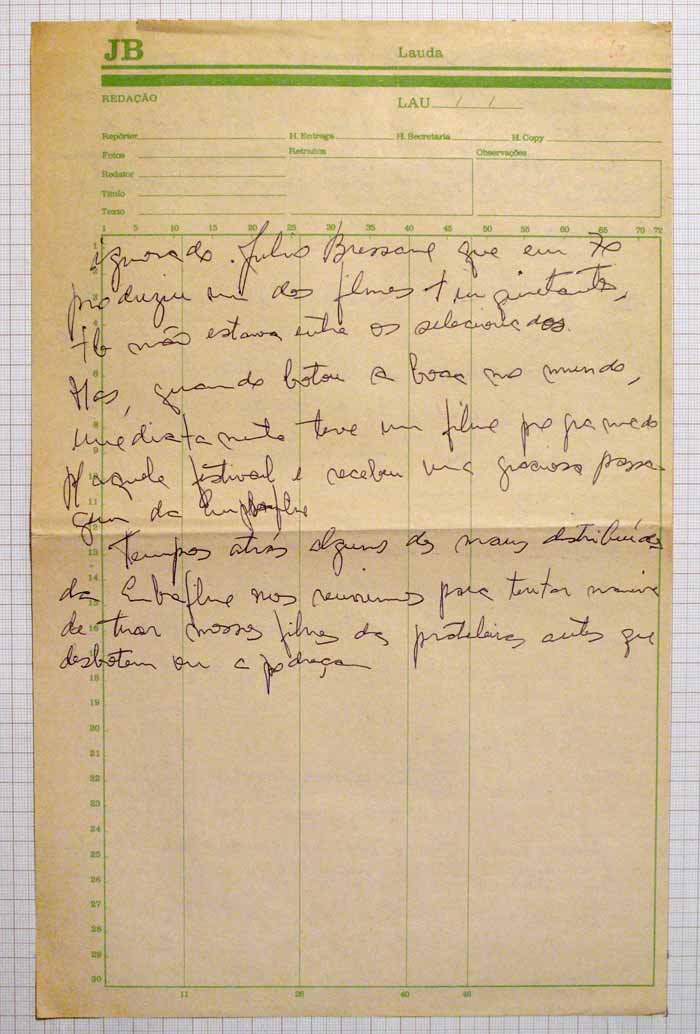 JB
Lauda
REDAÇÃO
LAU / /
Repórter H. Entrega H. Secretaria H. Copy
Fotos Retratos Observações
Redator
Título
Texto
1 5 10 15 20 25 30 35 40 45 50 55 60 65 70 72
ignorado. Julio Bressane que em 70
produziu um dos filmes + inquietantes,
tb não estava entre os selecionados.
Mas, quando botou a boca no mundo,
imediatamente teve um filme programado
p/ aquele festival e recebeu uma graciosa passa-
gem da Embrafilme
Tempos atrás alguns dos maus distribuídos
da Embrafilme nos reunimos para tentar maneira
de tirar nossos filmes das prateleiras antes que
desbotem ou apodreçam
18
19
20
21
22
23
24
25
26
27
28
29
30
11 26 40 48